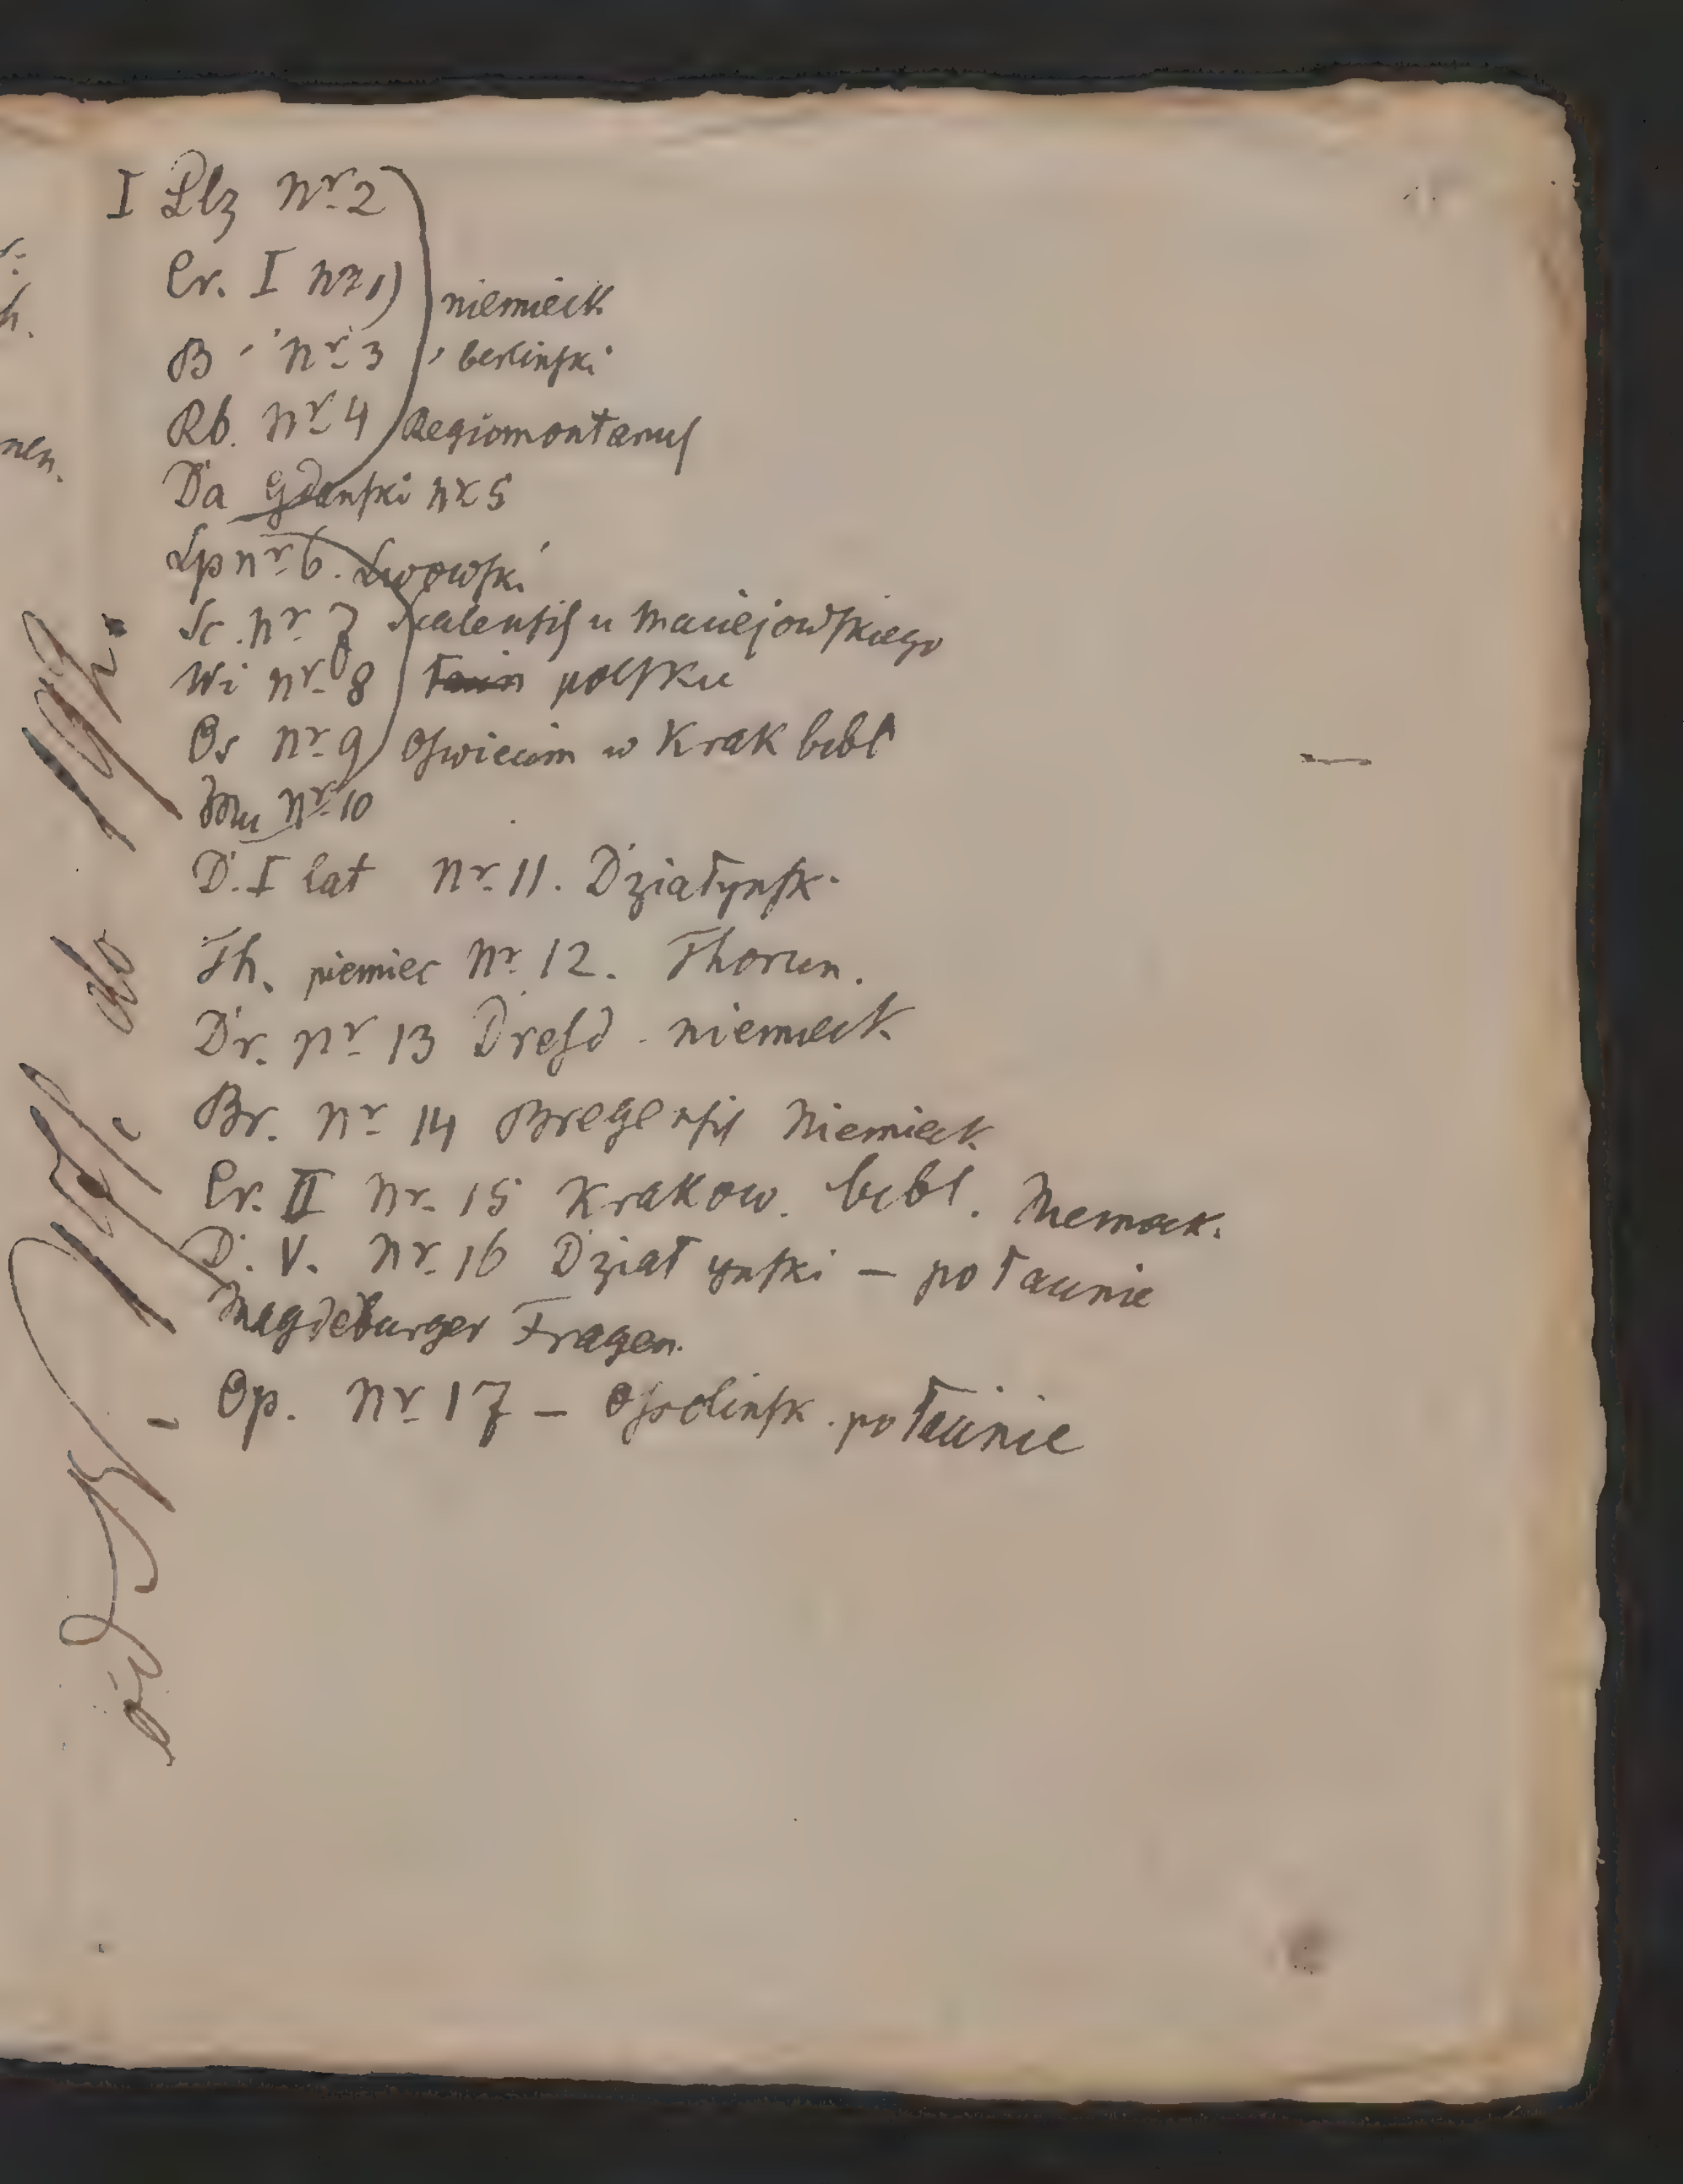 I Llz Nr. 2
Cr. I nr 1)
niemieck
B. Nr. 3 , berlinski
Rb. Nr. 4 Regiomontanus
Da Gdanski nr 5
Lp nr. 6. Lwowski
Sc. Nr. 7 Scalensis u Maciejowskiego
Wi nr. 8 polsku
Os nr. 9 Oswiecim w Krak bibl
Nr. 10
D. I lat Nr. 11. Działynsk.
Th. niemiec Nr. 12. Thorun.
Dr. nr. 13 Dresd. niemieck
Br. Nr. 14 Bregensis Niemieck
Cr. II Nr. 15 Krakow. bibl. Niemieck.
D. V. Nr. 16 Działynski — po łacinie
Magdeburger Fragen.
Op. Nr. 17 — Ossolinsk. po łacinie
od do